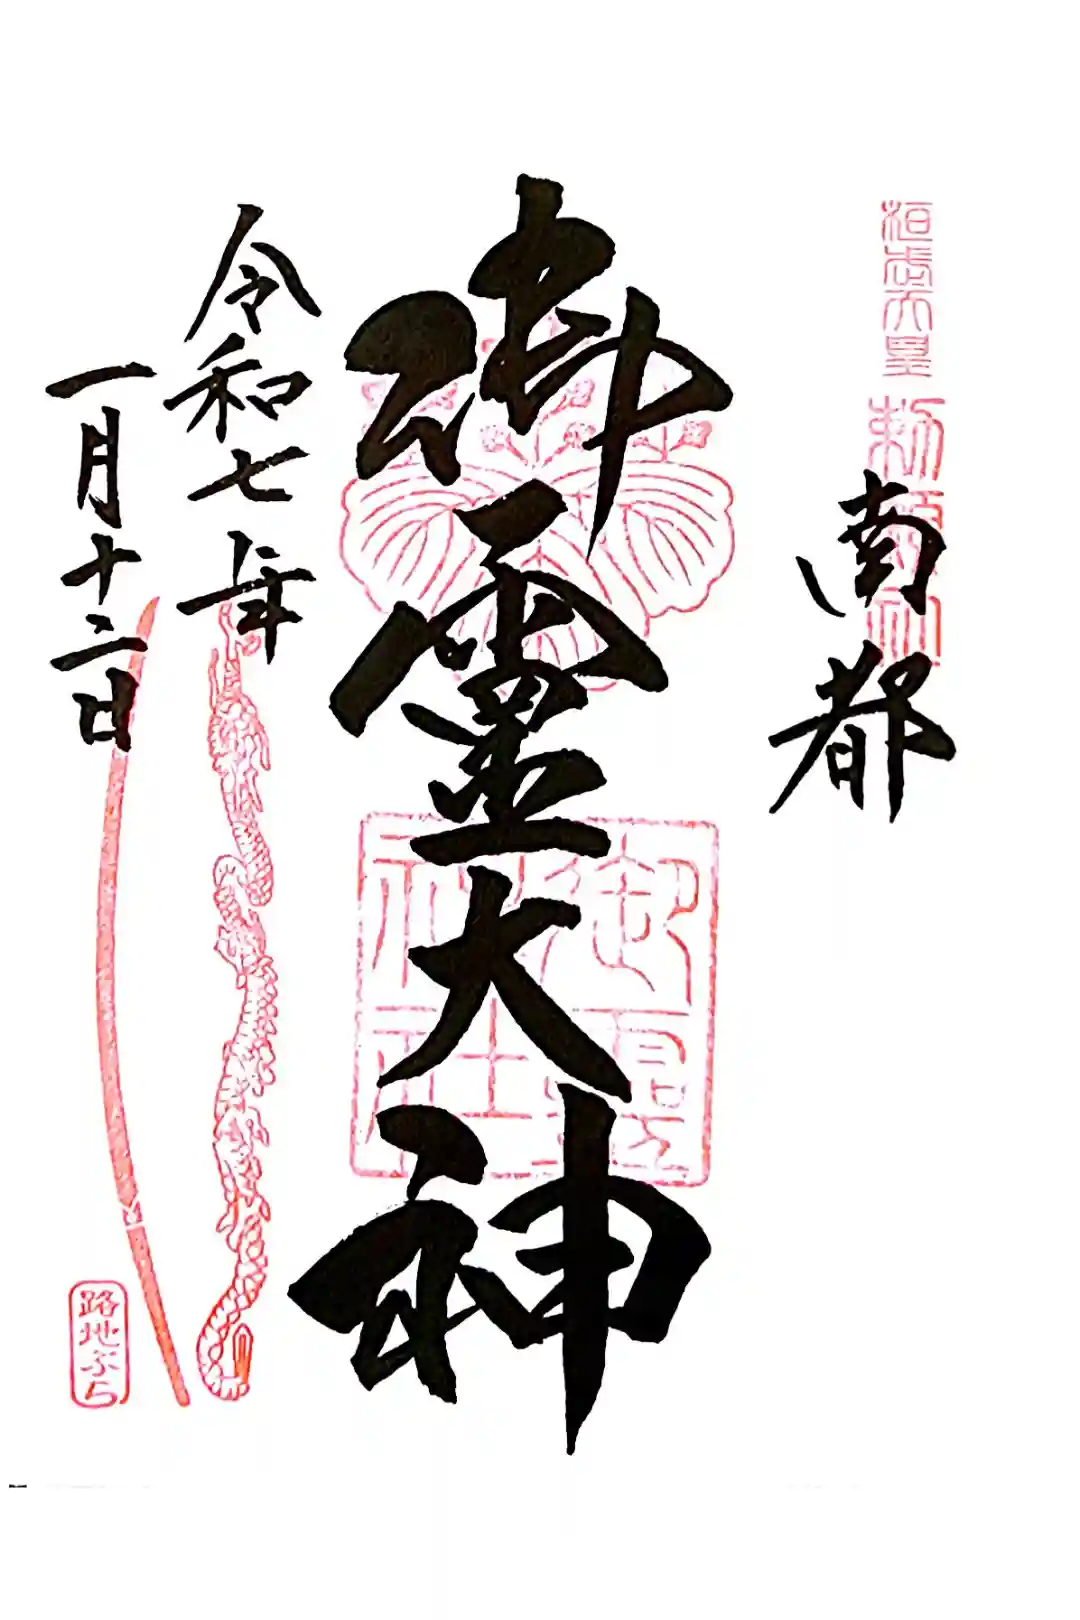 桓武天皇
勅願御社
南都
御霊大神
御霊
神社
令和七年
一月十二日
路地ぶら